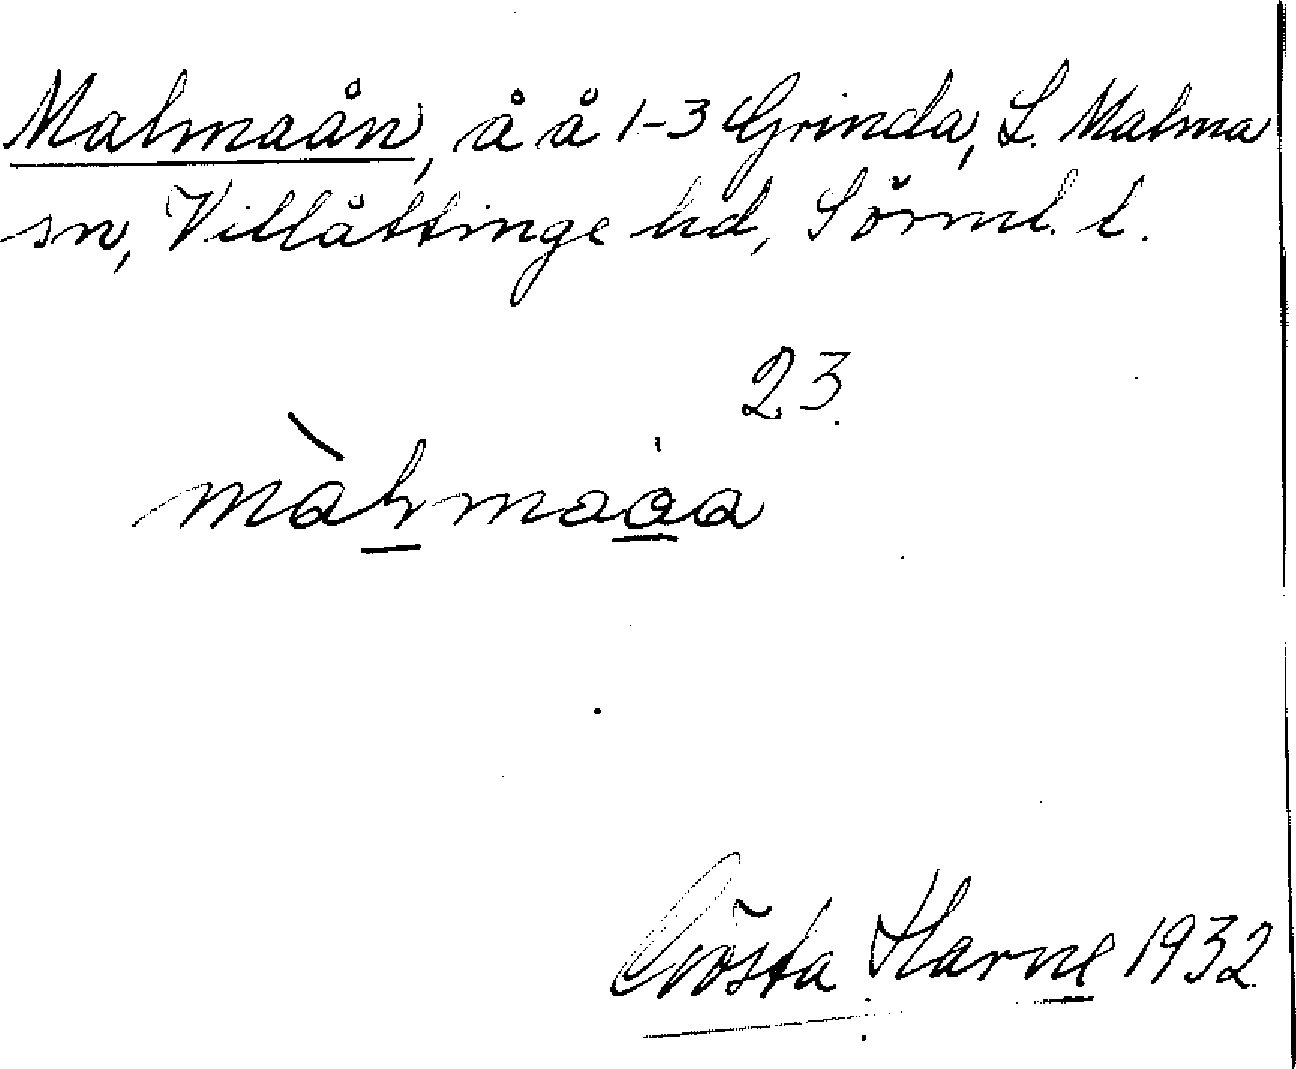 Malmaån, å å 1-3 Grinda, L. Malma
sn, Villåttinge hd, Sörml. l.
23.
Gösta Harne 1932